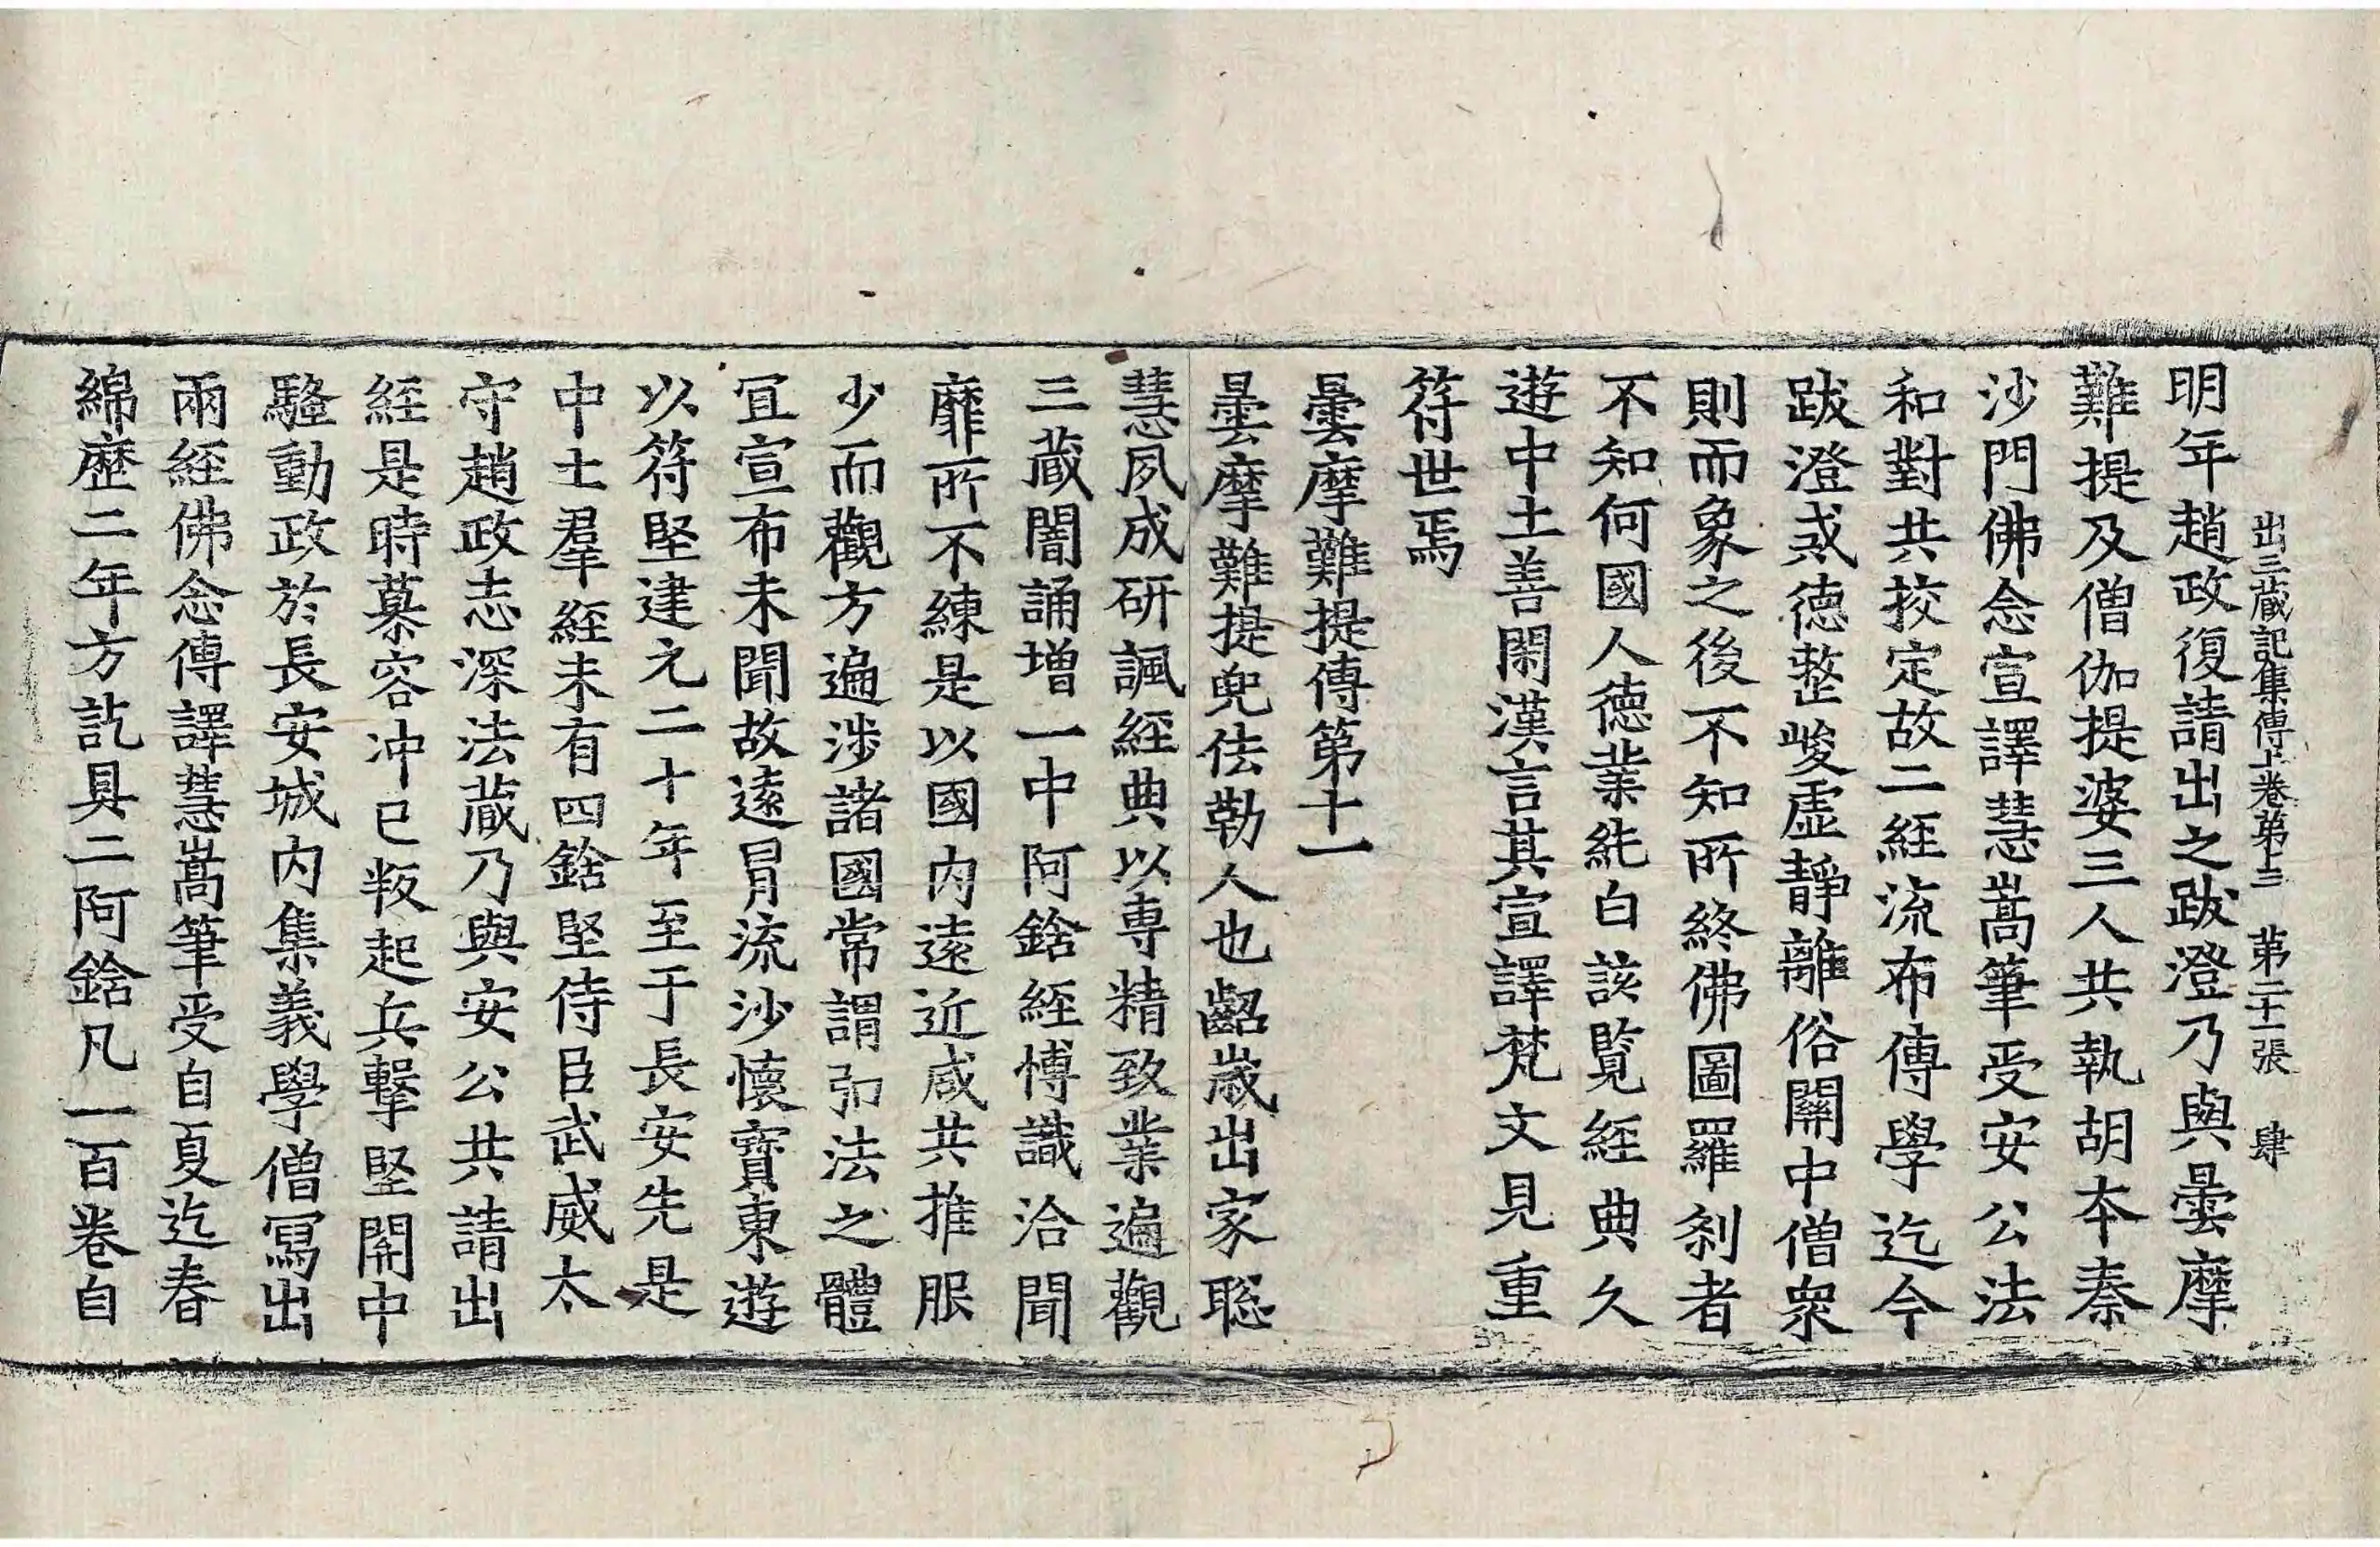 出三藏記集傳上卷第十三 第二十一張 肆
明年趙政復請出之跋澄乃與曇摩
難提及僧伽提婆三人共執胡本秦
沙門佛念宣譯慧嵩筆受安公法
和對共挍定故二經流布傳學迄今
跋澄戒德整峻虛靜離俗關中僧衆
則而象之後不知所終佛圖羅剎者
不知何國人德業純白該覽經典久
遊中土善閑漢言其宣譯梵文見重
符世焉
曇摩難提傳第十一
曇摩難提兜佉勒人也齠歲出家聡
慧夙成研諷經典以專精致業遍觀
三藏闇誦增一中阿鋡經博識洽聞
靡所不練是以國內遠近咸共推服
少而觀方遍涉諸國常謂弘法之體
宜宣布未聞故遠冒流沙懷寶東遊
以符堅建元二十年至于長安先是
中土羣經未有四鋡堅侍臣武威太
守趙政志深法藏乃與安公共請出
經是時慕容冲已叛起兵擊堅關中
騷動政於長安城內集義學僧寫出
兩經佛念傳譯慧嵩筆受自夏迄春
綿歷二年方訖具二阿鋡凡一百卷自